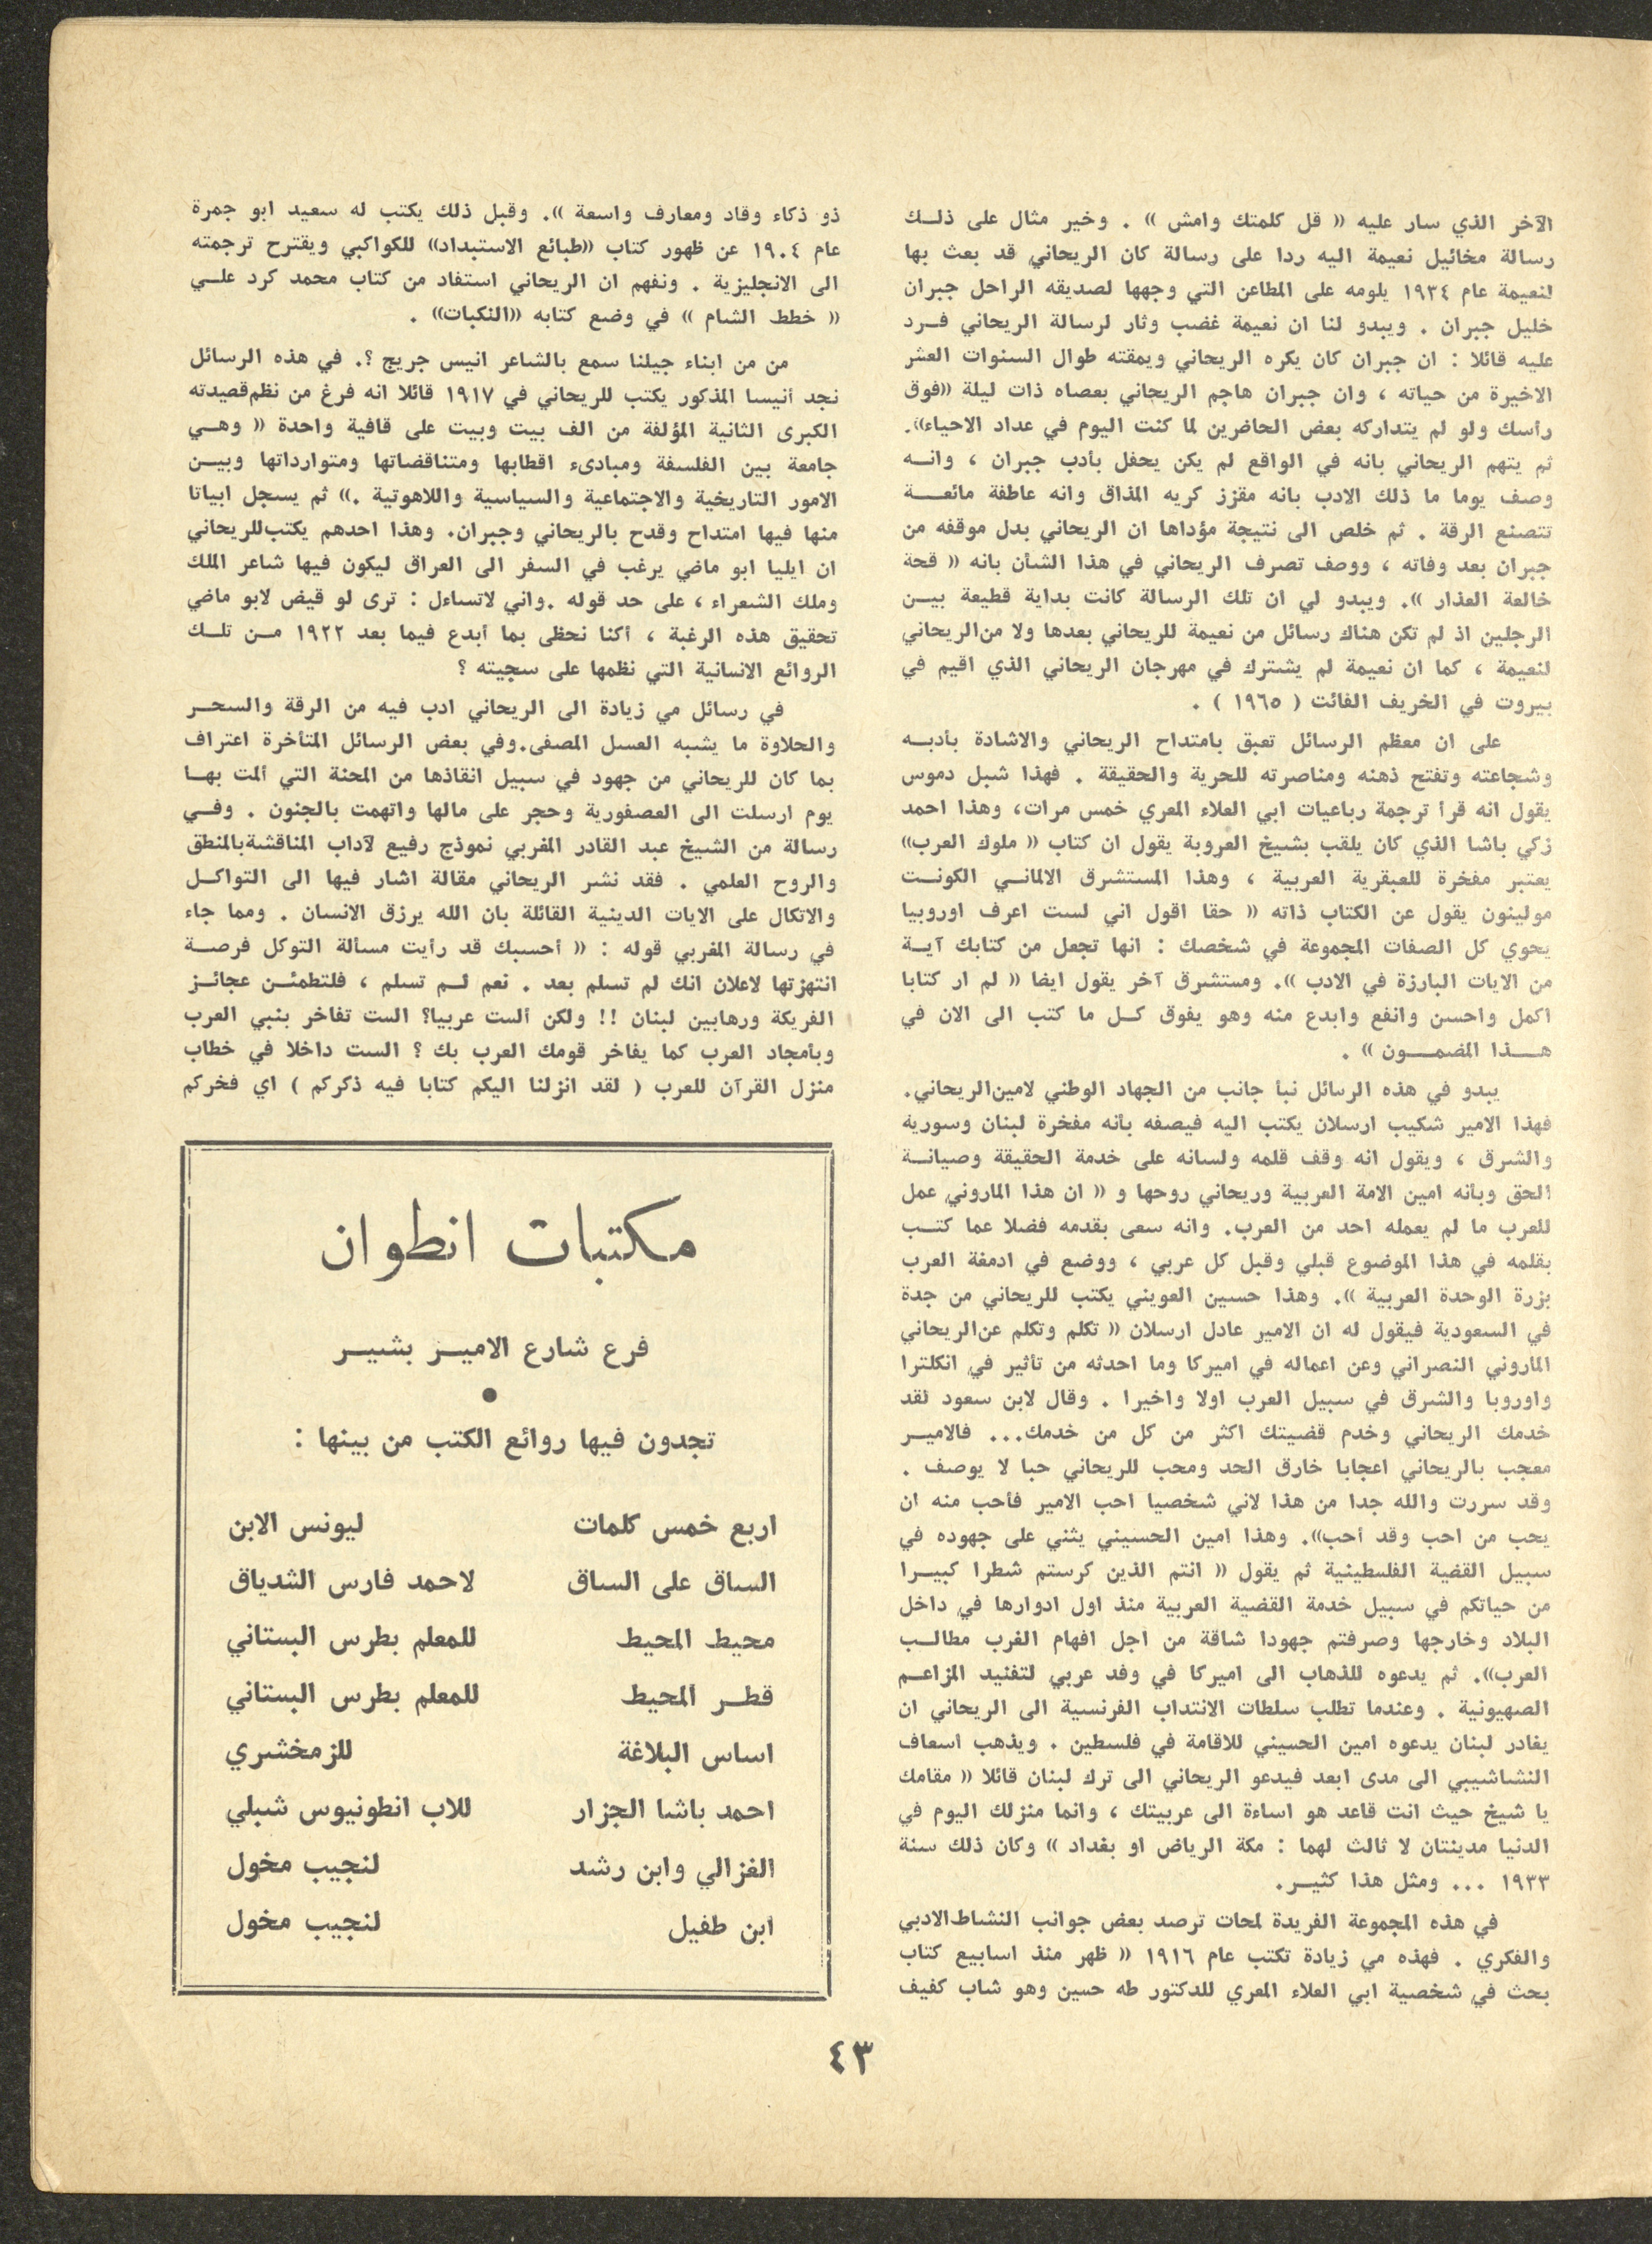 الآخر الذي سار عليه « قل كلمتك وامش » . وخير مثال على ذلـك
رسالة مخائيل نعيمة اليه ردا على رسالة كان الريحاني قد بعث بها
لنعيمة عام ١٩٣٤ يلومه على المطاعن التي وجهها لصديقه الراحل جبران
خليل جبران . ويبدو لنا ان نعيمة غضب وثار لرسالة الريحاني فـرد
عليه قائلا : ان جبران كان يكره الريحاني ويمقته طوال السنوات العشر
الاخيرة من حياته ، وان جبران هاجم الريحاني بعصاه ذات ليلة «فوق
رأسك ولو لم يتداركه بعض الحاضرين لما كنت اليوم في عداد الاحياء».
ثم يتهم الريحاني بانه في الواقع لم يكن يحفل بأدب جبران ، وانـه
وصف يوما ما ذلك الادب بانه مقزز كريه المذاق وانه عاطفة مائعـــة
تتصنع الرقة . ثم خلص الى نتيجة مؤداها ان الريحاني بدل موقفه من
جبران بعد وفاته ، ووصف تصرف الريحاني في هذا الشأن بانه « قحة
خالعة العذار ». ويبدو لي ان تلك الرسالة كانت بداية قطيعة بيـن
الرجلين اذ لم تكن هناك رسائل من نعيمة للريحاني بعدها ولا من الريحاني
لنعيمة ، كما ان نعيمة لم يشترك في مهرجان الريحاني الذي اقيم في
بيروت في الخريف الفائت ( ١٩٦٥ ) .
على ان معظم الرسائل تعبق بامتداح الريحاني والاشادة بأدبـه
وشجاعته وتفتح ذهنه ومناصرته للحرية والحقيقة . فهذا شبل دموس
يقول انه قرأ ترجمة رباعيات ابي العلاء المعري خمس مرات، وهذا احمد
زكي باشا الذي كان يلقب بشيخ العروبة يقول ان كتاب « ملوك العرب»
يعتبر مفخرة للعبقرية العربية ، وهذا المستشرق الالمانـي الكونـت
مولينون يقول عن الكتاب ذاته « حقا اقول اني لست اعرف اوروبيا
يحوي كل الصفات المجموعة في شخصك : انها تجعل من كتابك آيـة
من الايات البارزة في الادب ». ومستشرق آخر يقول ايضا « لم ار كتابا
اكمل واحسن وانفع وابدع منه وهو يفوق كـل ما كتب الى الان في
هـــذا المضمــون » .
يبدو في هذه الرسائل نبأ جانب من الجهاد الوطني لامين الريحاني.
فهذا الامير شكيب ارسلان يكتب اليه فيصفه بأنه مفخرة لبنان وسورية
والشرق ، ويقول انه وقف قلمه ولسانه على خدمة الحقيقة وصيانـة
الحق وبأنه امين الامة العربية وريحاني روحها و « ان هذا الماروني عمل
للعرب ما لم يعمله احد من العرب. وانه سعى بقدمه فضلا عما كتـب
بقلمه في هذا الموضوع قبلي وقبل كل عربي ، ووضع في ادمغة العرب
بزرة الوحدة العربية ». وهذا حسين العويني يكتب للريحاني من جدة
في السعودية فيقول له ان الامير عادل ارسلان « تكلم وتكلم عن الريحاني
الماروني النصراني وعن اعماله في اميركا وما احدثه من تأثير في انكلترا
واوروبا والشرق في سبيل العرب اولا واخيرا . وقال لابن سعود لقد
خدمك الريحاني وخدم قضيتك اكثر من كل من خدمك... فالاميـر
معجب بالريحاني اعجابا خارق الحد ومحب للريحاني حبا لا يوصف .
وقد سررت والله جدا من هذا لاني شخصيا احب الامير فأحب منه ان
يحب من احب وقد أحب». وهذا امين الحسيني يثني على جهوده في
سبيل القضية الفلسطينية ثم يقول « انتم الذين كرستم شطرا كبيـرا
من حياتكم في سبيل خدمة القضية العربية منذ اول ادوارها في داخل
البلاد وخارجها وصرفتم جهودا شاقة من اجل افهام الغرب مطالـب
العرب». ثم يدعوه للذهاب الى اميركا في وفد عربي لتفنيد المزاعـم
الصهيونية . وعندما تطلب سلطات الانتداب الفرنسية الى الريحاني ان
يغادر لبنان يدعوه امين الحسيني للاقامة في فلسطين . ويذهب اسعاف
النشاشيبي الى مدى ابعد فيدعو الريحاني الى ترك لبنان قائلا « مقامك
يا شيخ حيث انت قاعد هو اساءة الى عربيتك ، وانما منزلك اليوم في
الدنيا مدينتان لا ثالث لهما : مكة الرياض او بغداد » وكان ذلك سنة
١٩٣٣ ... ومثل هذا كثيـر.
في هذه المجموعة الفريدة لمحات ترصد بعض جوانب النشاط الادبي
والفكري . فهذه مي زيادة تكتب عام ١٩١٦ « ظهر منذ اسابيع كتاب
بحث في شخصية ابي العلاء المعري للدكتور طه حسين وهو شاب كفيف
ذو ذكاء وقاد ومعارف واسعة ». وقبل ذلك يكتب له سعيد ابو جمرة
عام ١٩٠٤ عن ظهور كتاب «طبائع الاستبداد» للكواكبي ويقترح ترجمته
الى الانجليزية . ونفهم ان الريحاني استفاد من كتاب محمد كرد علـي
« خطط الشام » في وضع كتابه «النكبات» .
من من ابناء جيلنا سمع بالشاعر انيس جريج ؟. في هذه الرسائل
نجد أنيسا المذكور يكتب للريحاني في ١٩١٧ قائلا انه فرغ من نظم قصيدته
الكبرى الثانية المؤلفة من الف بيت وبيت على قافية واحدة « وهـي
جامعة بين الفلسفة ومبادىء اقطابها ومتناقضاتها ومتوارداتها وبيـن
الامور التاريخية والاجتماعية والسياسية واللاهوتية .» ثم يسجل ابياتا
منها فيها امتداح وقدح بالريحاني وجبران. وهذا احدهم يكتب للريحاني
ان ايليا ابو ماضي يرغب في السفر الى العراق ليكون فيها شاعر الملك
وملك الشعراء ، على حد قوله .واني لاتساءل : ترى لو قيض لابو ماضي
تحقيق هذه الرغبة ، أكنا نحظى بما أبدع فيما بعد ١٩٢٢ مـن تلـك
الروائع الانسانية التي نظمها على سجيته ؟
في رسائل مي زيادة الى الريحاني ادب فيه من الرقة والسحـر
والحلاوة ما يشبه العسل المصفى.وفي بعض الرسائل المتأخرة اعتراف
بما كان للريحاني من جهود في سبيل انقاذها من المحنة التي ألمت بهـا
يوم ارسلت الى العصفورية وحجر على مالها واتهمت بالجنون . وفـي
رسالة من الشيخ عبد القادر المغربي نموذج رفيع لآداب المناقشة بالمنطق
والروح العلمي . فقد نشر الريحاني مقالة اشار فيها الى التواكـل
والاتكال على الايات الدينية القائلة بان الله يرزق الانسان . ومما جاء
في رسالة المغربي قوله : « أحسبك قد رأيت مسألة التوكل فرصـة
انتهزتها لاعلان انك لم تسلم بعد . نعم لـم تسلم ، فلتطمئـن عجائـز
الفريكة ورهابين لبنان !! ولكن ألست عربيا؟ الست تفاخر بنبي العرب
وبأمجاد العرب كما يفاخر قومك العرب بك ؟ الست داخلا في خطاب
منزل القرآن للعرب ( لقد انزلنا اليكم كتابا فيه ذكركم ) اي فخركم
مكتبات انطوان
فرع شارع الاميـر بشيـر
تجدون فيها روائع الكتب من بينها :
اربع خمس كلمات ليونس الابن
الساق على الساق لاحمد فارس الشدياق
محيط المحيط للمعلم بطرس البستاني
قطـر المحيط للمعلم بطرس البستاني
اساس البلاغة للزمخشري
احمد باشا الجزار للاب انطونيوس شبلي
الغزالي وابن رشد لنجيب مخول
ابن طفيل لنجيب مخول
٤٣